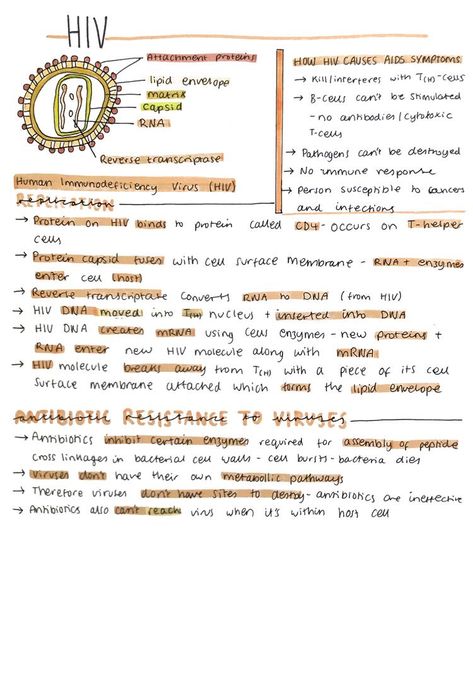 HIV
Attachment protein
lipid envelope
matrix
capsid
RNA
Reverse transcriptase
Human Immunodeficiency Virus (HIV)
HOW HIV CAUSES AIDS SYMPTOMS
→ Kills/interferes with T(H)-cells
→ B-cells can't be stimulated
- no antibodies/cytotoxic
T-cells
→ Pathogens can't be destroyed
→ No immune response
→ Person susceptible to cancers
and infections
REPLICATION
→ Protein on HIV binds to protein called CD4- occurs on T-helper
cells
→ Protein capsid fuses with cell surface membrane - RNA + enzymes
enter cell (host)
→ Reverse transcriptase converts RNA to DNA (from HIV)
→ HIV DNA moved into T(H) nucleus + inserted into DNA
→ HIV DNA creates mRNA using cells enzymes - new proteins +
RNA enter new HIV molecule along with mRNA
→ HIV molecule breaks away from T(H) with a piece of its cell
surface membrane attached which forms the lipid envelope
ANTIBIOTIC RESISTANCE TO VIRUSES
→ Antibiotics inhibit certain enzymes required for assembly of peptide
cross linkages in bacterial cell walls - cell bursts - bacteria dies
→ Viruses don't have their own metabolic pathways
→ Therefore viruses don't have sites to destroy - antibiotics are ineffective
→ Antibiotics also can't reach virus when it's within host cell